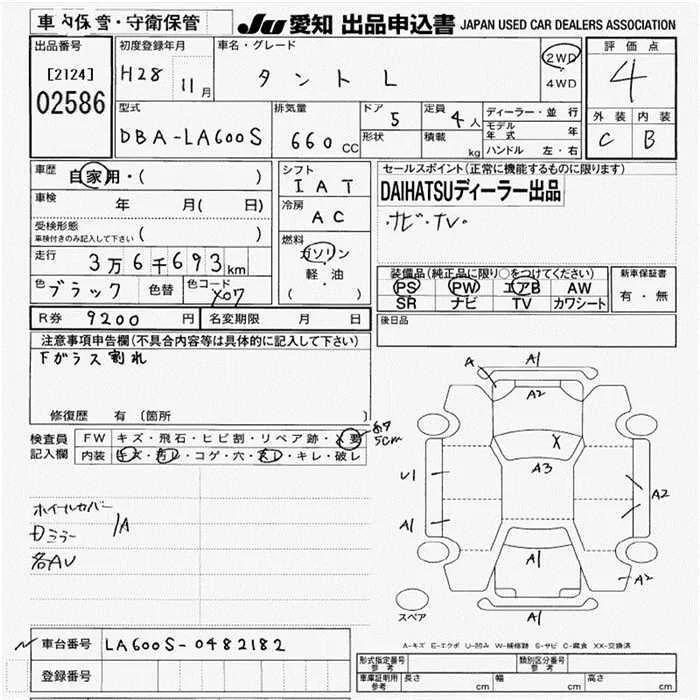 車内保管・守衛保管
JU 愛知 出品申込書 JAPAN USED CAR DEALERS ASSOCIATION
出品番号
[2124]
02586
初度登録年月
H28 11月
車名・グレード
タント L
2WD
4WD
評価点
4
外装 内装
C B
型式
DBA-LA600S
排気量
660 CC
ドア 5
形状
定員 4人
積載 kg
ディーラー・並行
モデル年式 年
ハンドル 左・右
車歴 自家用・( )
車検 年 月( 日)
受検形態
車検付きのみ記入して下さい ( )
走行 3万6千693km
色 ブラック 色替 色コード X07
シフト
IAT
冷房
AC
燃料
ガソリン
軽・油
( )
セールスポイント(正常に機能するものに限ります)
DAIHATSUディーラー出品
・ナビ・TV・
装備品(純正品に限り○をつけてください)
PS PW エアB AW
SR ナビ TV カワシート
新車保証書
有・無
後日品
R券 9200円 名変期限 月 日
注意事項申告欄(不具合内容等は具体的に記入して下さい)
下ガラス割れ
修復歴 有 〔箇所 〕
検査員
記入欄
FW キズ・飛石・ヒビ割・リペア跡・X要
内装 キズ・汚レ・コゲ・穴・スレ・キレ・破レ
5cm
ホイールカバー
ミラー
1A
各AU
A
A1
A2
X
A3
U1
A1
A2
A1
A2
A1
スペア
A-キズ E-エクボ U-凹み W-補修跡 S-サビ C-腐食 XX-交換済
車台番号 LA600S-0482182
登録番号
形式指定番号
参考
類別区分番号
参考
車庫証明用
参考
長さ cm 幅 cm 高さ cm